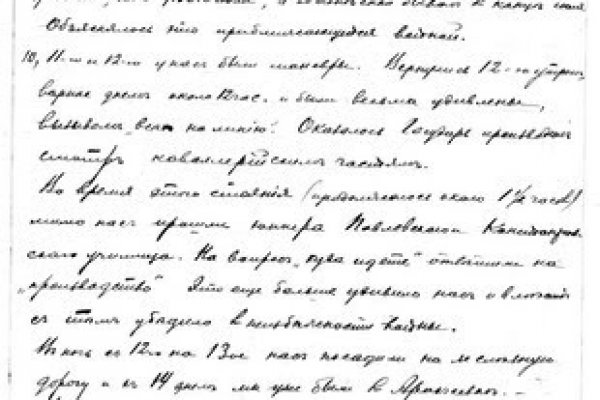 Объяснялось это приближающейся войной.
10, 11-го и 12-го у нас были маневры. Вернулись 12-го утром,
вернее днем около 12 час. и были весьма удивлены,
вызовом „всех на линию“. Оказалось Государь производит
смотр кавалерийским частям.
Во время этого стояния (продолжалось около 1 1/2 часов)
мимо нас прошли юнкера Павловского
ского училища. На вопрос „куда идете“ ответили на
„производство“ Это еще больше удивило нас и
с тем убедило в неизбежности войны.
В ночь с 12го на 13ое нас посадили на железную
дорогу и к 14 днем мы уже были в